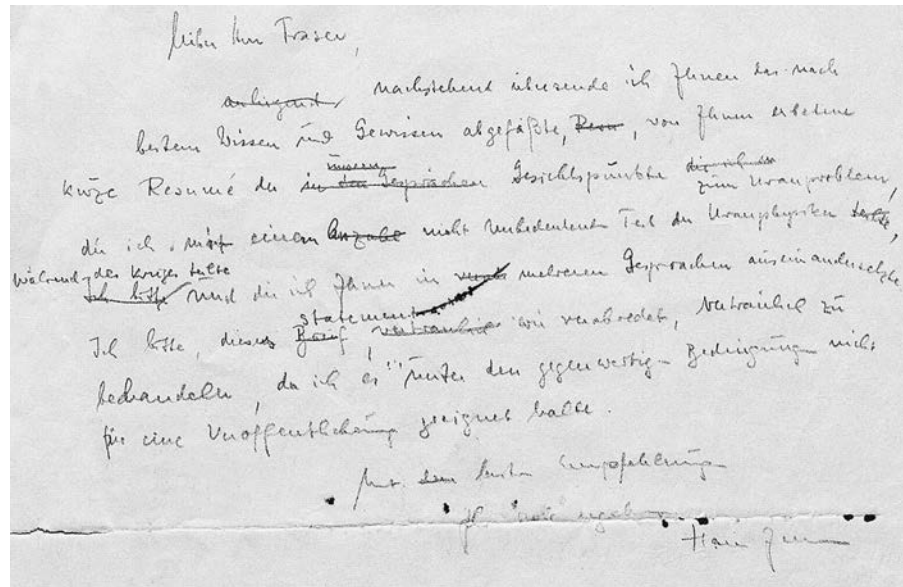 Lieber Herr Fraser,
anliegend nachstehend übersende ich Ihnen das nach
bestem Wissen und Gewissen abgefaßte, von Ihnen erbetene
unserer
kurze Resumé der in den Gesprächen Gesichtspunkte zum Uranproblem,
die ich mit einem nicht unbedeutenden Teil der Uranphysiker teilte,
während des Krieges teilte
Ich bitte und die ich Ihnen in mehreren Gesprächen auseinandersetzte.
statement
Ich bitte, dieses Brief, vertraulich wie verabredet, vertraulich zu
behandeln, da ich es unter den gegenwertigen Bedingungen nicht
für eine Veröffentlichung geeignet halte.
Mit den besten Empfehlungen